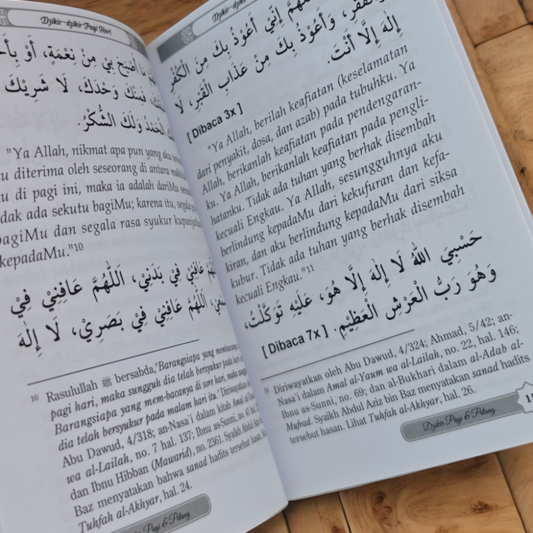 Dzikir-dzikir Pagi Hari
أَصْبَحَ بِيْ مِنْ نِعْمَةٍ، أَوْ بِأَحَدٍ
فَمِنْكَ وَحْدَكَ، لَا شَرِيْكَ
الْحَمْدُ وَلَكَ الشُّكْرُ.
"Ya Allah, nikmat apa pun yang aku
diterima oleh seseorang di antara
di pagi ini, maka ia adalah dariMu
tidak ada sekutu bagiMu; karena itu, segala
bagiMu dan segala rasa syukur
kepadaMu."10
عَافِنِيْ فِيْ بَدَنِيْ، اَللّٰهُمَّ عَافِنِيْ فِيْ
اَللّٰهُمَّ عَافِنِيْ فِيْ بَصَرِيْ، لَا إِلٰهَ
10 Rasulullah ﷺ bersabda, "Barangsiapa yang
pagi hari, maka sungguh dia telah bersyukur pada
Barangsiapa yang mem-bacanya di sore hari, maka
dia telah bersyukur pada malam hari itu."
Abu Dawud, 4/318; an-Nasa'i dalam kitab Amal
wa al-Lailah, no. 7 hal. 137; Ibnu as-Sunni, no.
dan Ibnu Hibban (Mawarid), no. 2361. Syaikh Abdul
Baz menyatakan bahwa sanad hadits tersebut hasan.
Tuhfah al-Akhyar, hal. 24.
Pagi & Petang
Dzikir-dzikir Pagi Hari
إِنِّيْ أَعُوْذُ بِكَ مِنَ الْكُفْرِ
وَالْفَقْرِ، وَأَعُوْذُ بِكَ مِنْ عَذَابِ الْقَبْرِ، لَا
إِلٰهَ إِلَّا أَنْتَ.
[Dibaca 3x]
"Ya Allah, berilah keafiatan (keselamatan
dari penyakit, dosa, dan azab) pada tubuhku. Ya
Allah, berikanlah keafiatan pada pendengaran-
ku. Ya Allah, berikanlah keafiatan pada pengli-
hatanku. Tidak ada tuhan yang berhak disembah
kecuali Engkau. Ya Allah, sesungguhnya aku
berlindung kepadaMu dari kekufuran dan kefa-
kiran, dan aku berlindung kepadaMu dari siksa
kubur. Tidak ada tuhan yang berhak disembah
kecuali Engkau."11
حَسْبِيَ اللّٰهُ لَا إِلٰهَ إِلَّا هُوَ، عَلَيْهِ تَوَكَّلْتُ،
وَهُوَ رَبُّ الْعَرْشِ الْعَظِيْمِ. [Dibaca 7x]
11 Diriwayatkan oleh Abu Dawud, 4/324; Ahmad, 5/42; an-
Nasa'i dalam Amal al-Yaum wa al-Lailah, no. 22, hal. 146;
Ibnu as-Sunni, no. 69; dan al-Bukhari dalam al-Adab al-
Mufrad. Syaikh Abdul Aziz bin Baz menyatakan sanad hadits
tersebut hasan. Lihat Tuhfah al-Akhyar, hal. 26.
Dzikir Pagi & Petang